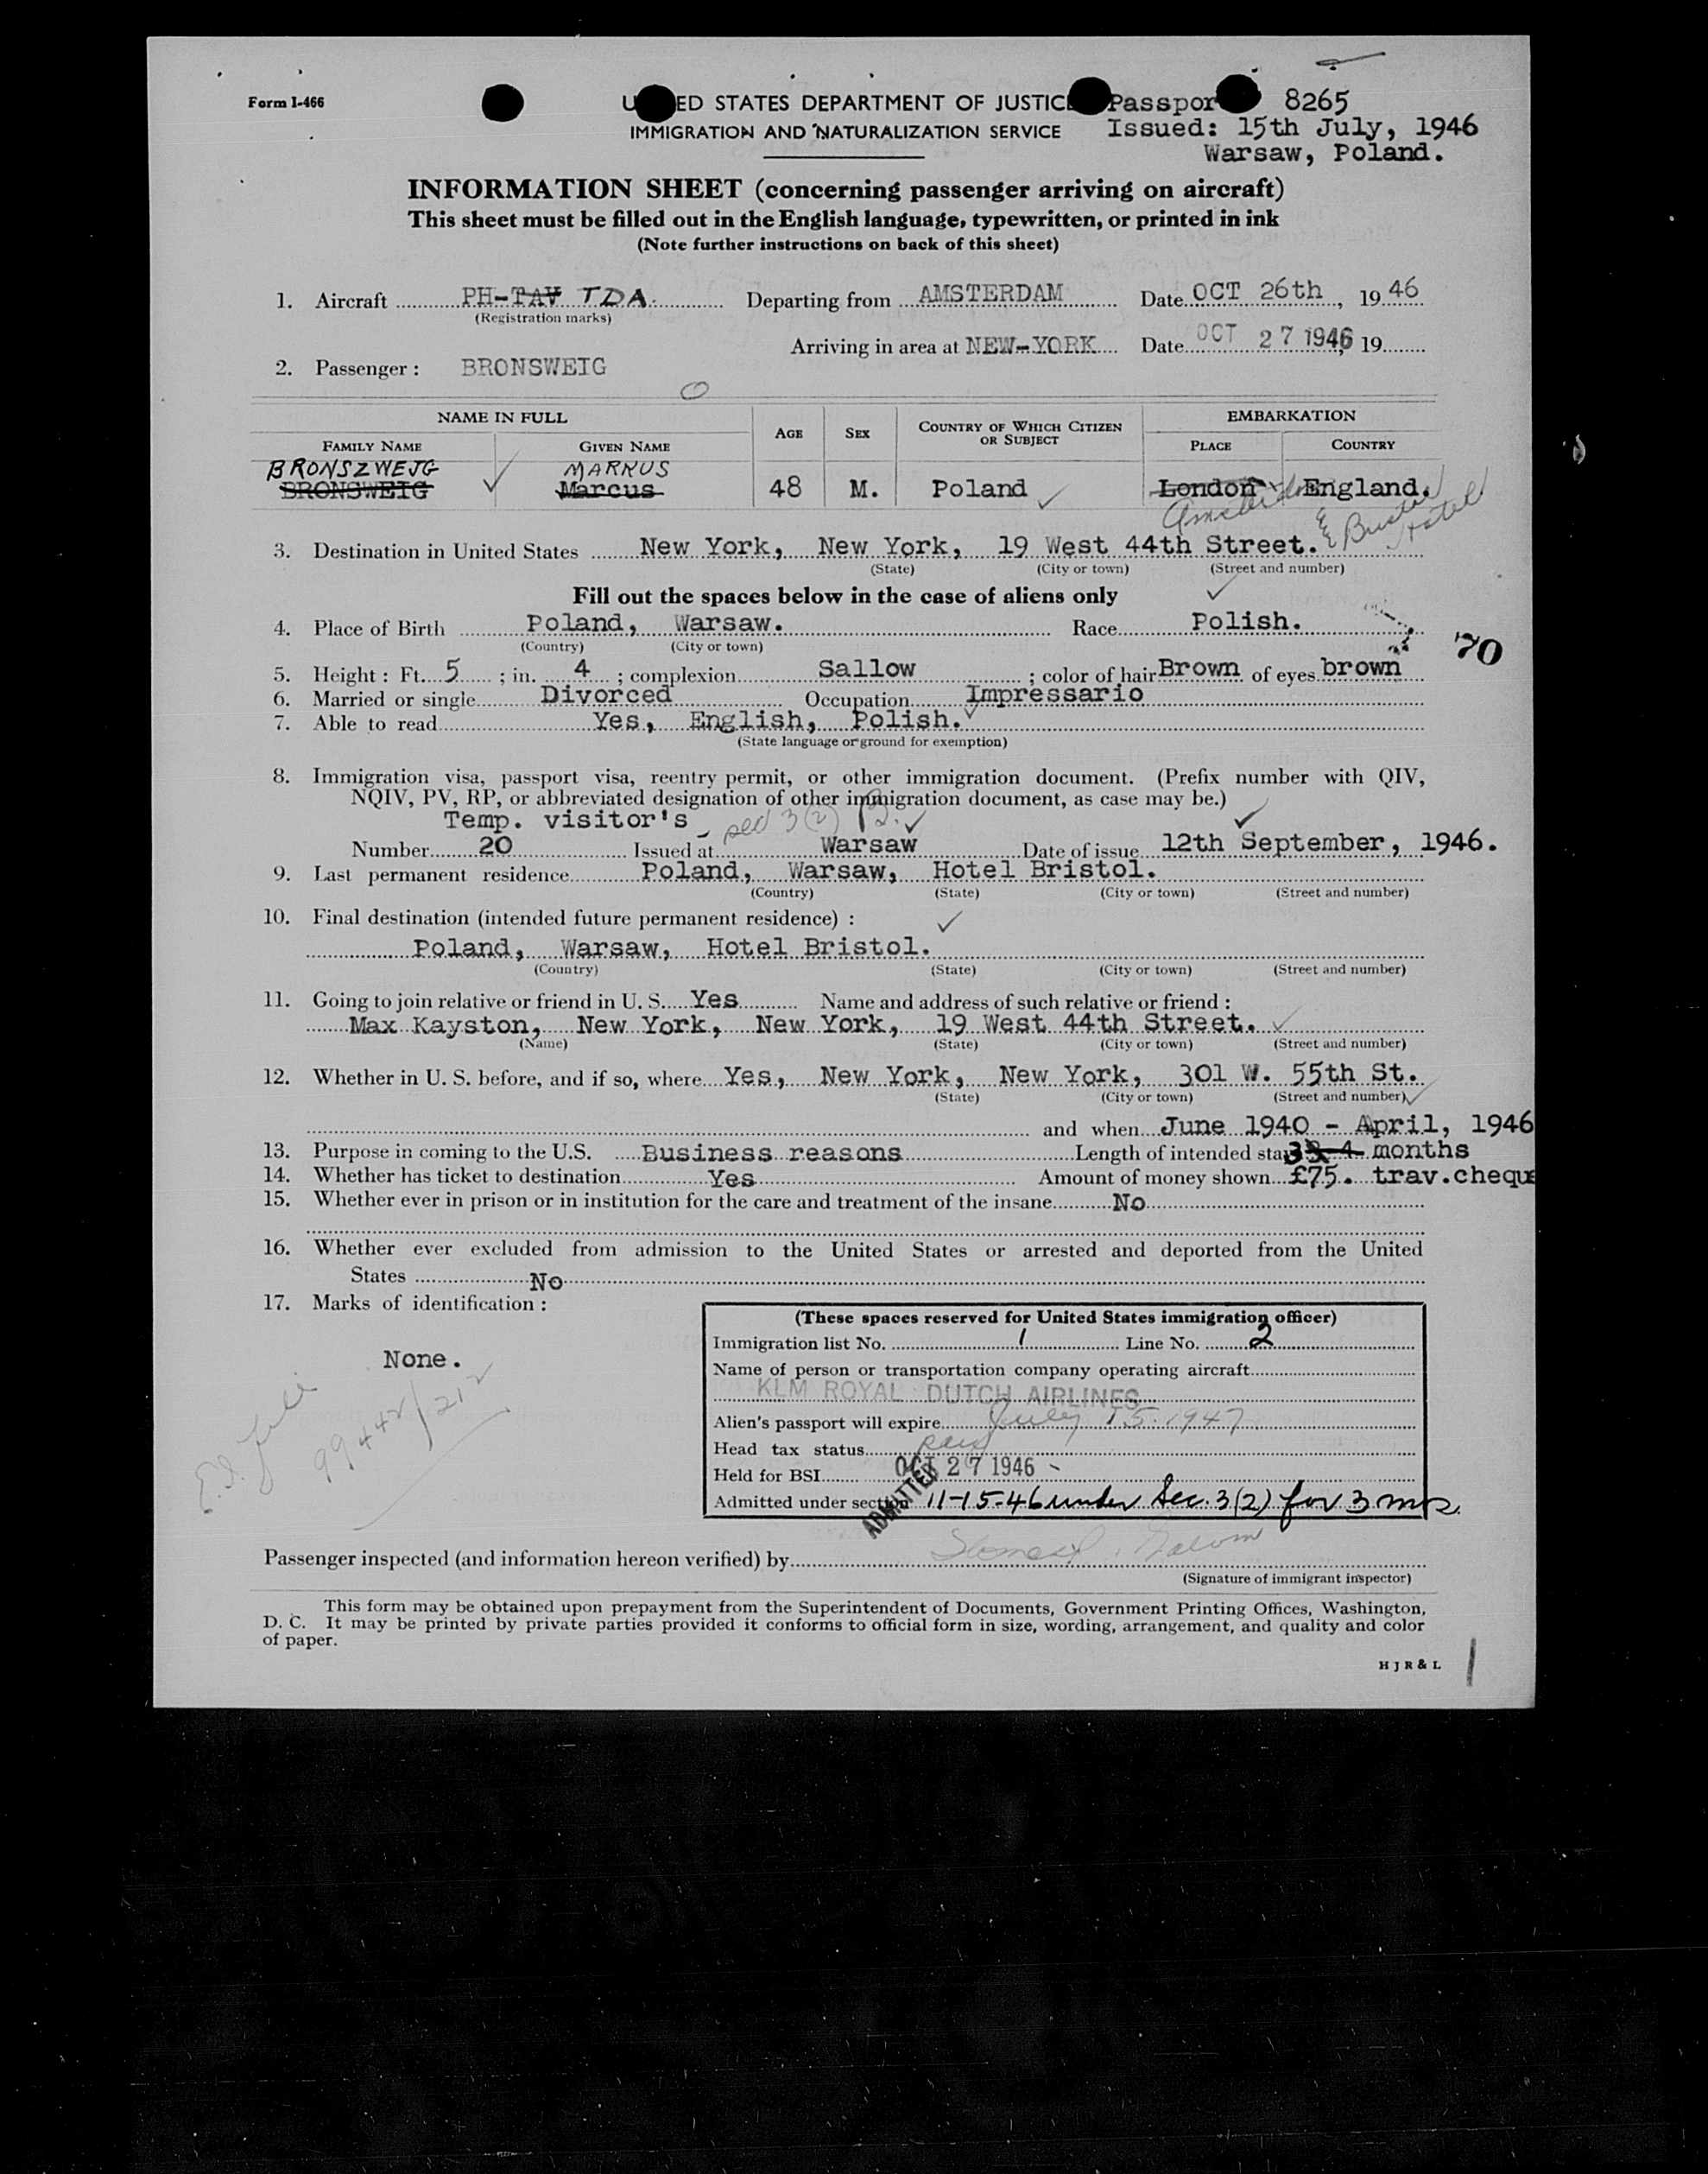 Form I-466
UNITED STATES DEPARTMENT OF JUSTICE
IMMIGRATION AND NATURALIZATION SERVICE
Passport 8265
Issued: 15th July, 1946
Warsaw, Poland.
INFORMATION SHEET (concerning passenger arriving on aircraft)
This sheet must be filled out in the English language, typewritten, or printed in ink
(Note further instructions on back of this sheet)
1. Aircraft PH-TAV TDA. Departing from AMSTERDAM Date OCT 26th, 19 46
(Registration marks)
Arriving in area at NEW-YORK Date OCT 27 1946, 19
2. Passenger : BRONSWEIG
NAME IN FULL AGE SEX COUNTRY OF WHICH CITIZEN OR SUBJECT EMBARKATION
FAMILY NAME GIVEN NAME PLACE COUNTRY
BRONSZWEJG MARKUS
BRONSWEIG Marcus 48 M. Poland London England.
Amsterdam
Hotel
3. Destination in United States New York, New York, 19 West 44th Street.
(State) (City or town) (Street and number)
Fill out the spaces below in the case of aliens only
4. Place of Birth Poland, Warsaw. Race Polish.
(Country) (City or town)
70
5. Height : Ft. 5 ; in. 4 ; complexion Sallow ; color of hair Brown of eyes brown
6. Married or single Divorced Occupation Impressario
7. Able to read Yes, English, Polish.
(State language or ground for exemption)
8. Immigration visa, passport visa, reentry permit, or other immigration document. (Prefix number with QIV,
NQIV, PV, RP, or abbreviated designation of other immigration document, as case may be.)
Temp. visitor's sec 3(2)
Number 20 Issued at Warsaw Date of issue 12th September, 1946.
9. Last permanent residence Poland, Warsaw, Hotel Bristol.
(Country) (State) (City or town) (Street and number)
10. Final destination (intended future permanent residence) :
Poland, Warsaw, Hotel Bristol.
(Country) (State) (City or town) (Street and number)
11. Going to join relative or friend in U. S. Yes Name and address of such relative or friend :
Max Kayston, New York, New York, 19 West 44th Street.
(Name) (State) (City or town) (Street and number)
12. Whether in U. S. before, and if so, where Yes, New York, New York, 301 W. 55th St.
(State) (City or town) (Street and number)
and when June 1940 - April, 1946
13. Purpose in coming to the U.S. Business reasons Length of intended stay 3 months
14. Whether has ticket to destination Yes Amount of money shown £75. trav.cheque
15. Whether ever in prison or in institution for the care and treatment of the insane No
16. Whether ever excluded from admission to the United States or arrested and deported from the United
States No
17. Marks of identification :
None.
99442/212
(These spaces reserved for United States immigration officer)
Immigration list No. 1 Line No. 2
Name of person or transportation company operating aircraft
KLM ROYAL DUTCH AIRLINES
Alien's passport will expire July 15. 1947
Head tax status paid
Held for BSI OCT 27 1946
ADMITTED
Admitted under section 11-15-46 under Sec. 3(2) for 3 mos.
Passenger inspected (and information hereon verified) by
(Signature of immigrant inspector)
This form may be obtained upon prepayment from the Superintendent of Documents, Government Printing Offices, Washington,
D. C. It may be printed by private parties provided it conforms to official form in size, wording, arrangement, and quality and color
of paper.
H J R & L